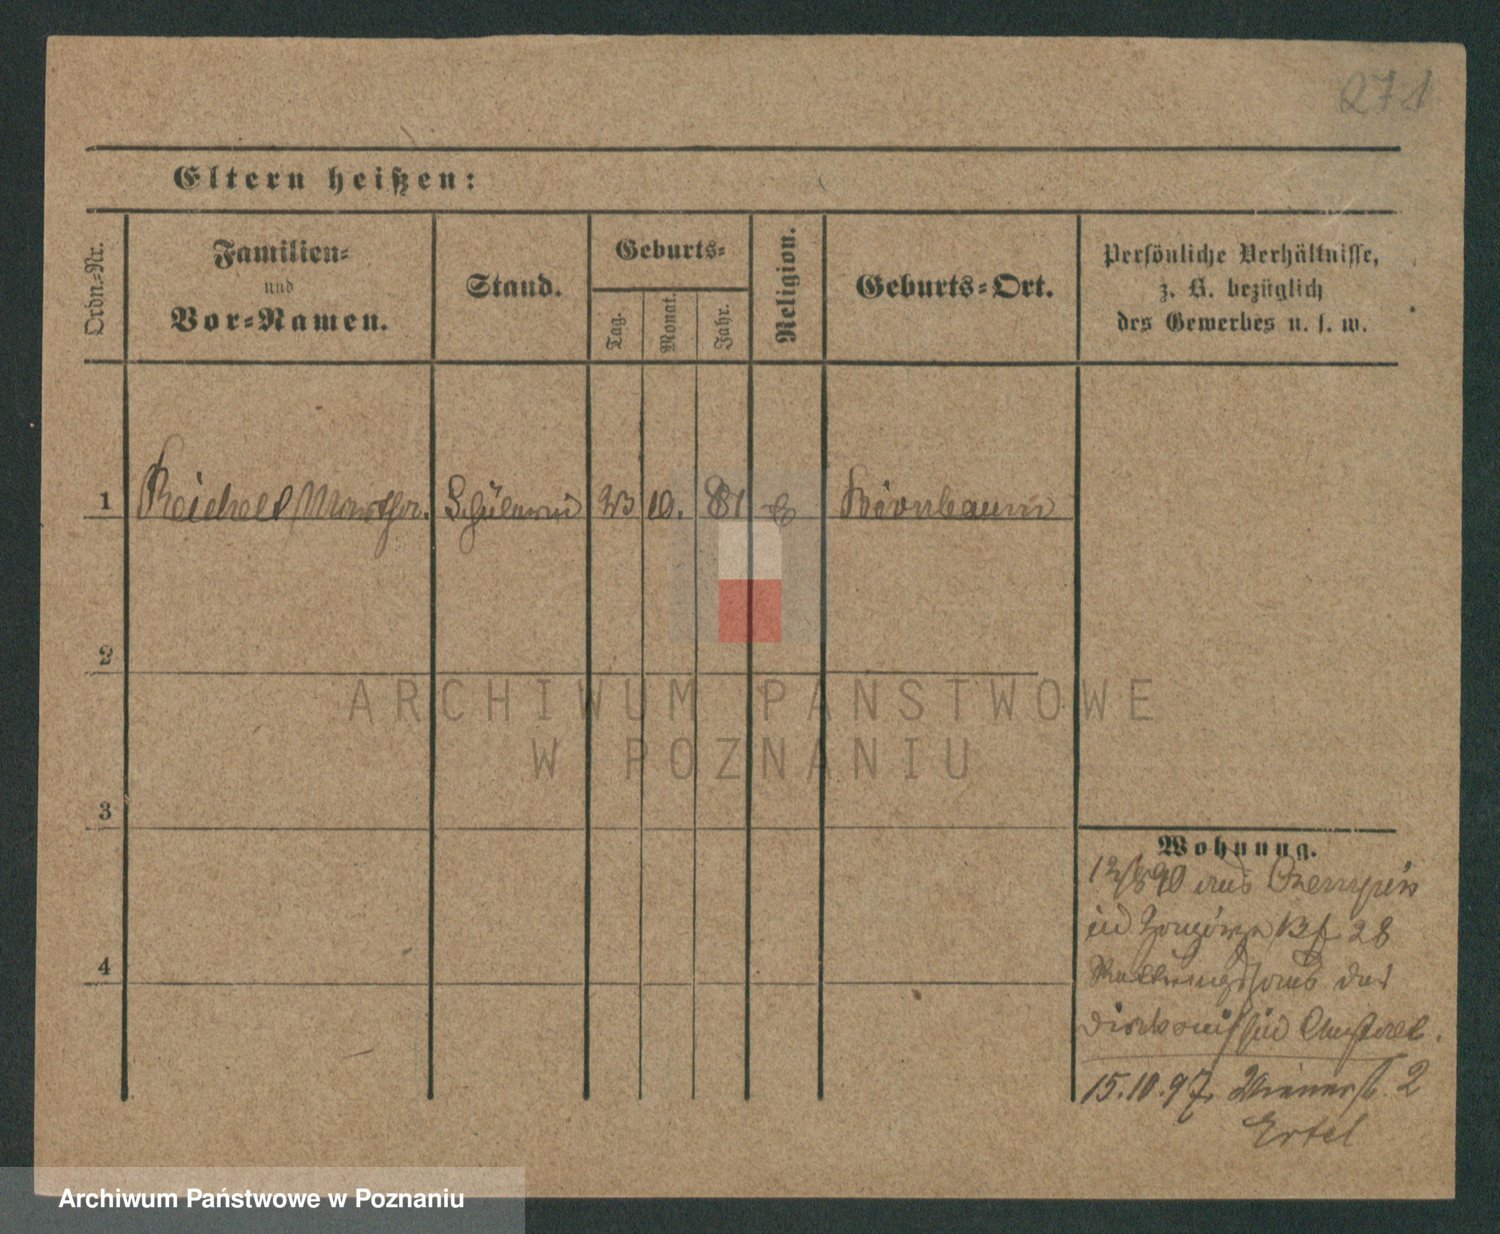 271
Eltern heißen:
Ordn.-Nr.
Familien-
und
Vor-Namen.
Stand.
Geburts-
Tag.
Monat.
Jahr.
Religion.
Geburts-Ort.
Persönliche Verhältnisse,
z. B. bezüglich
des Gewerbes u. s. w.
1 Reichelt Martha. Schülerin 23 10. 81 Birnbaum
2
ARCHIWUM PAŃSTWOWE
W POZNANIU
3
4
Wohnung.
90 aus
in Zagórze 28
Rettungshaus der
Diakonissin Anstalt.
15.10.97. Wienerstr. 2
Ertel
Archiwum Państwowe w Poznaniu